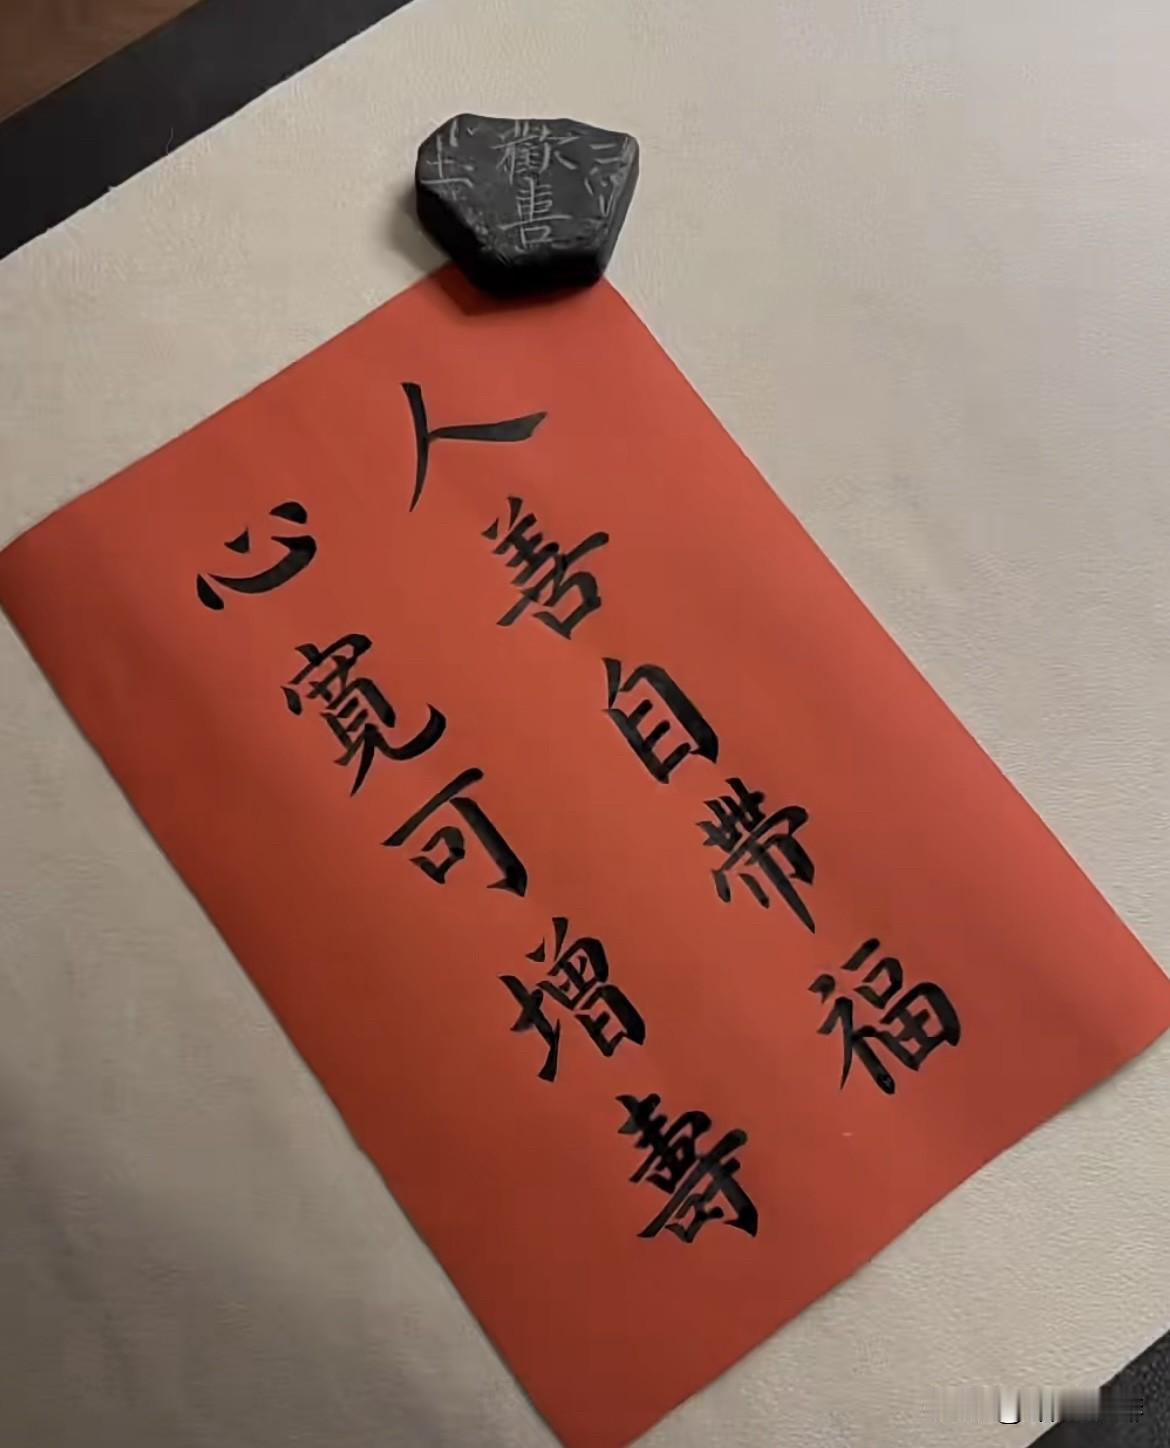 人善自帶福
心寬可增壽